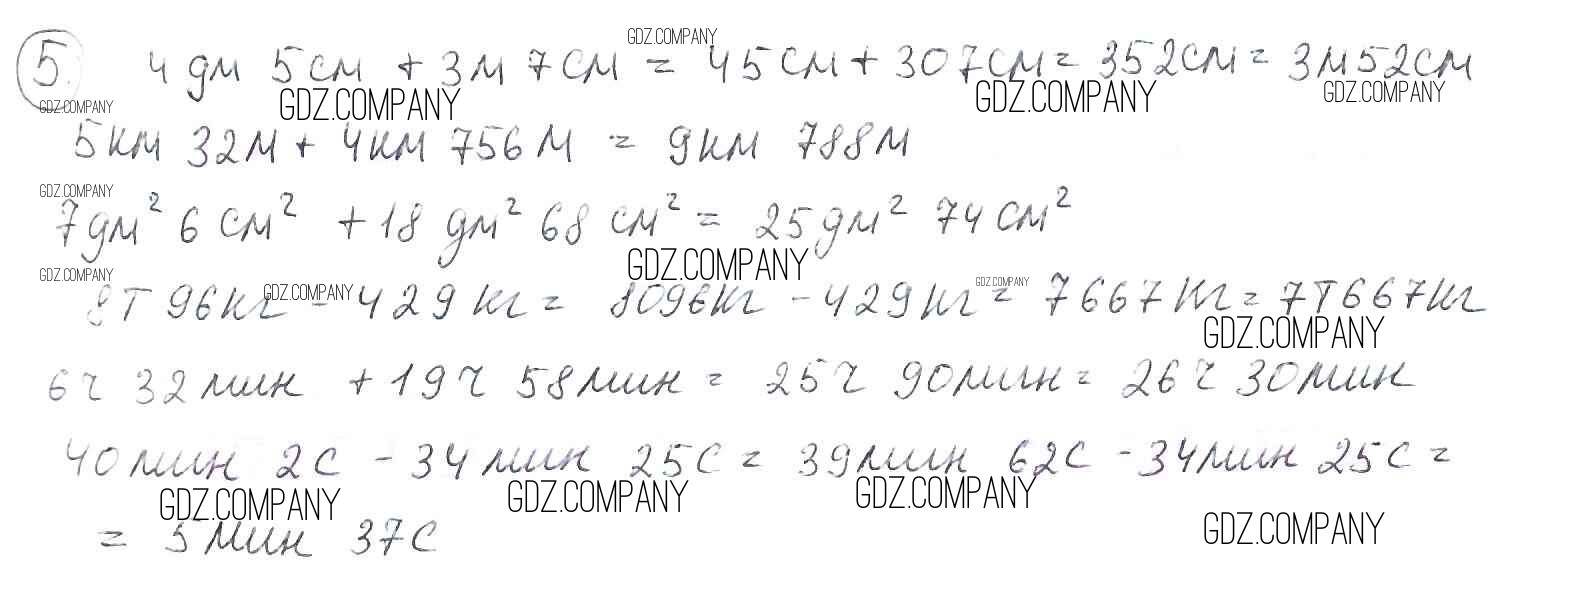 5. 4 дм 5 см + 3 м 7 см = 45 см + 307 см = 352 см = 3 м 52 см
GDZ.COMPANY
GDZ.COMPANY GDZ.COMPANY GDZ.COMPANY GDZ.COMPANY
5 км 32 м + 4 км 756 м = 9 км 788 м
GDZ.COMPANY
7 дм² 6 см² + 18 дм² 68 см² = 25 дм² 74 см²
GDZ.COMPANY GDZ.COMPANY
GDZ.COMPANY GDZ.COMPANY
8 т 96 кг - 429 кг = 8096 кг - 429 кг = 7667 кг = 7 т 667 кг
GDZ.COMPANY
6 ч 32 мин + 19 ч 58 мин = 25 ч 90 мин = 26 ч 30 мин
40 мин 2 с - 34 мин 25 с = 39 мин 62 с - 34 мин 25 с =
GDZ.COMPANY GDZ.COMPANY GDZ.COMPANY GDZ.COMPANY
= 5 мин 37 с